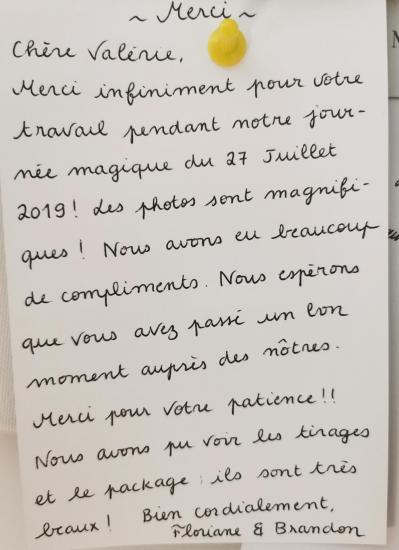 ~ Merci ~
Chère Valérie,
Merci infiniment pour votre
travail pendant notre jour-
née magique du 27 Juillet
2019! Les photos sont magnifi-
ques! Nous avons eu beaucoup
de compliments. Nous espérons
que vous avez passé un bon
moment auprès des nôtres.
Merci pour votre patience!!
Nous avons pu voir les tirages
et le package : ils sont très
beaux! Bien cordialement,
Floriane & Brandon